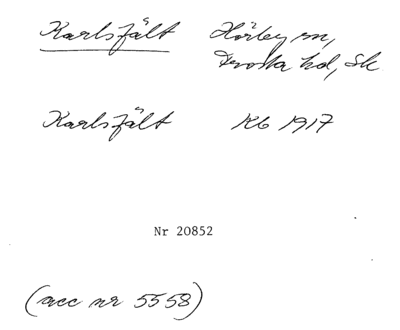 Karlsfält Hörby sn,
Frosta hd, Sk
Karlsfält Kb 1917
Nr 20852
(acc nr 5558)